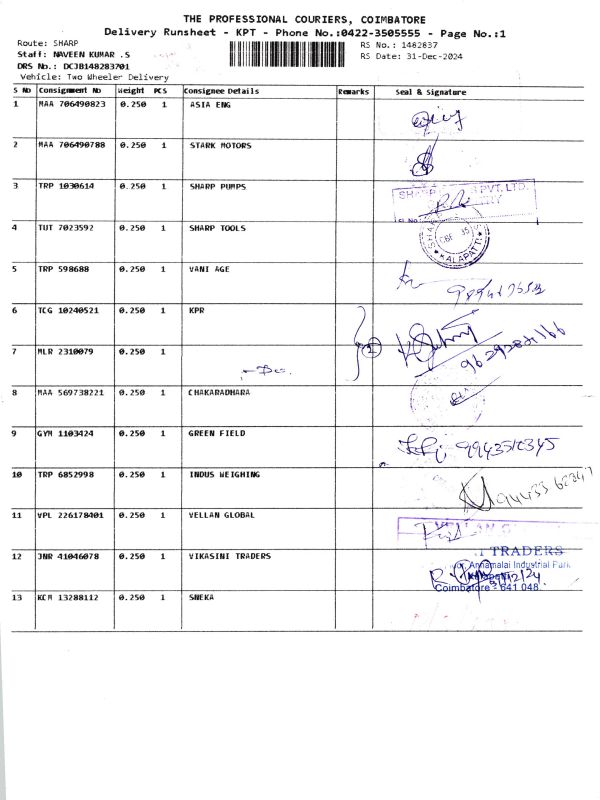 THE PROFESSIONAL COURIERS, COIMBATORE
Delivery Runsheet - KPT - Phone No.:0422-3505555 - Page No.:1
Route: SHARP
RS No.: 1482837
Staff: NAVEEN KUMAR .S
RS Date: 31-Dec-2024
DRS No.: DCJB148283701
Vehicle: Two Wheeler Delivery
S No Consignment No Weight PCS Consignee Details Remarks Seal & Signature
1 MAA 706490823 0.250 1 ASIA ENG
2 MAA 706490788 0.250 1 STARK MOTORS
3 TRP 1030614 0.250 1 SHARP PUMPS
PVT. LTD.
4 TUT 7023592 0.250 1 SHARP TOOLS
KALAPATTI
5 TRP 598688 0.250 1 VANI AGE
6 TCG 10240521 0.250 1 KPR
1
7 MLR 2310079 0.250 1
8 MAA 569738221 0.250 1 CHAKARADHARA
9 GYM 1103424 0.250 1 GREEN FIELD
9943512345
10 TRP 6852998 0.250 1 INDUS WEIGHING
11 VPL 226178401 0.250 1 VELLAN GLOBAL
12 JNR 41046078 0.250 1 VIKASINI TRADERS
TRADERS
Annamalai Industrial Park
Coimbatore - 641 048.
13 KCM 13288112 0.250 1 SNEKA